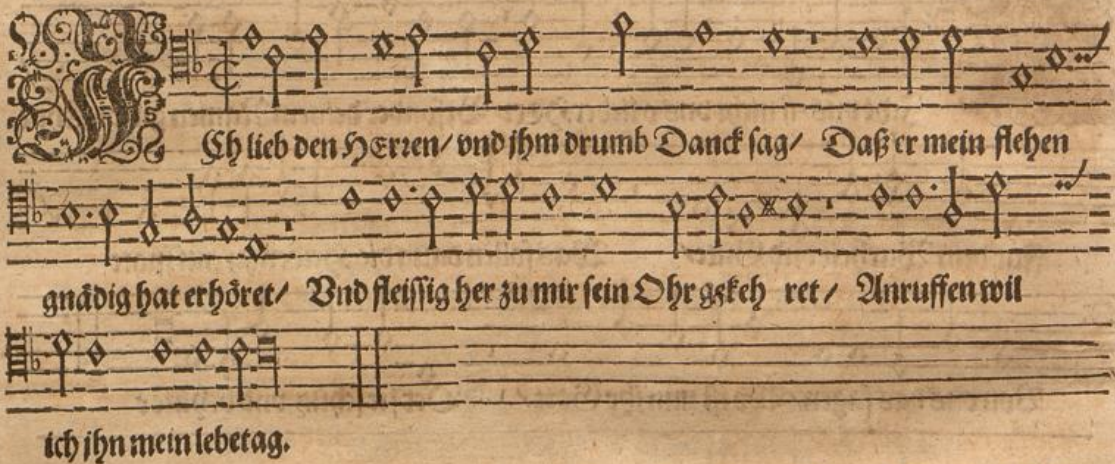 ICh lieb den HErren/ vnd jhm drumb Danck sag/ Daß er mein flehen
gnädig hat erhöret/ Vnd fleissig her zu mir sein Ohr gekeh ret/ Anruffen wil
ich jhn mein lebetag.